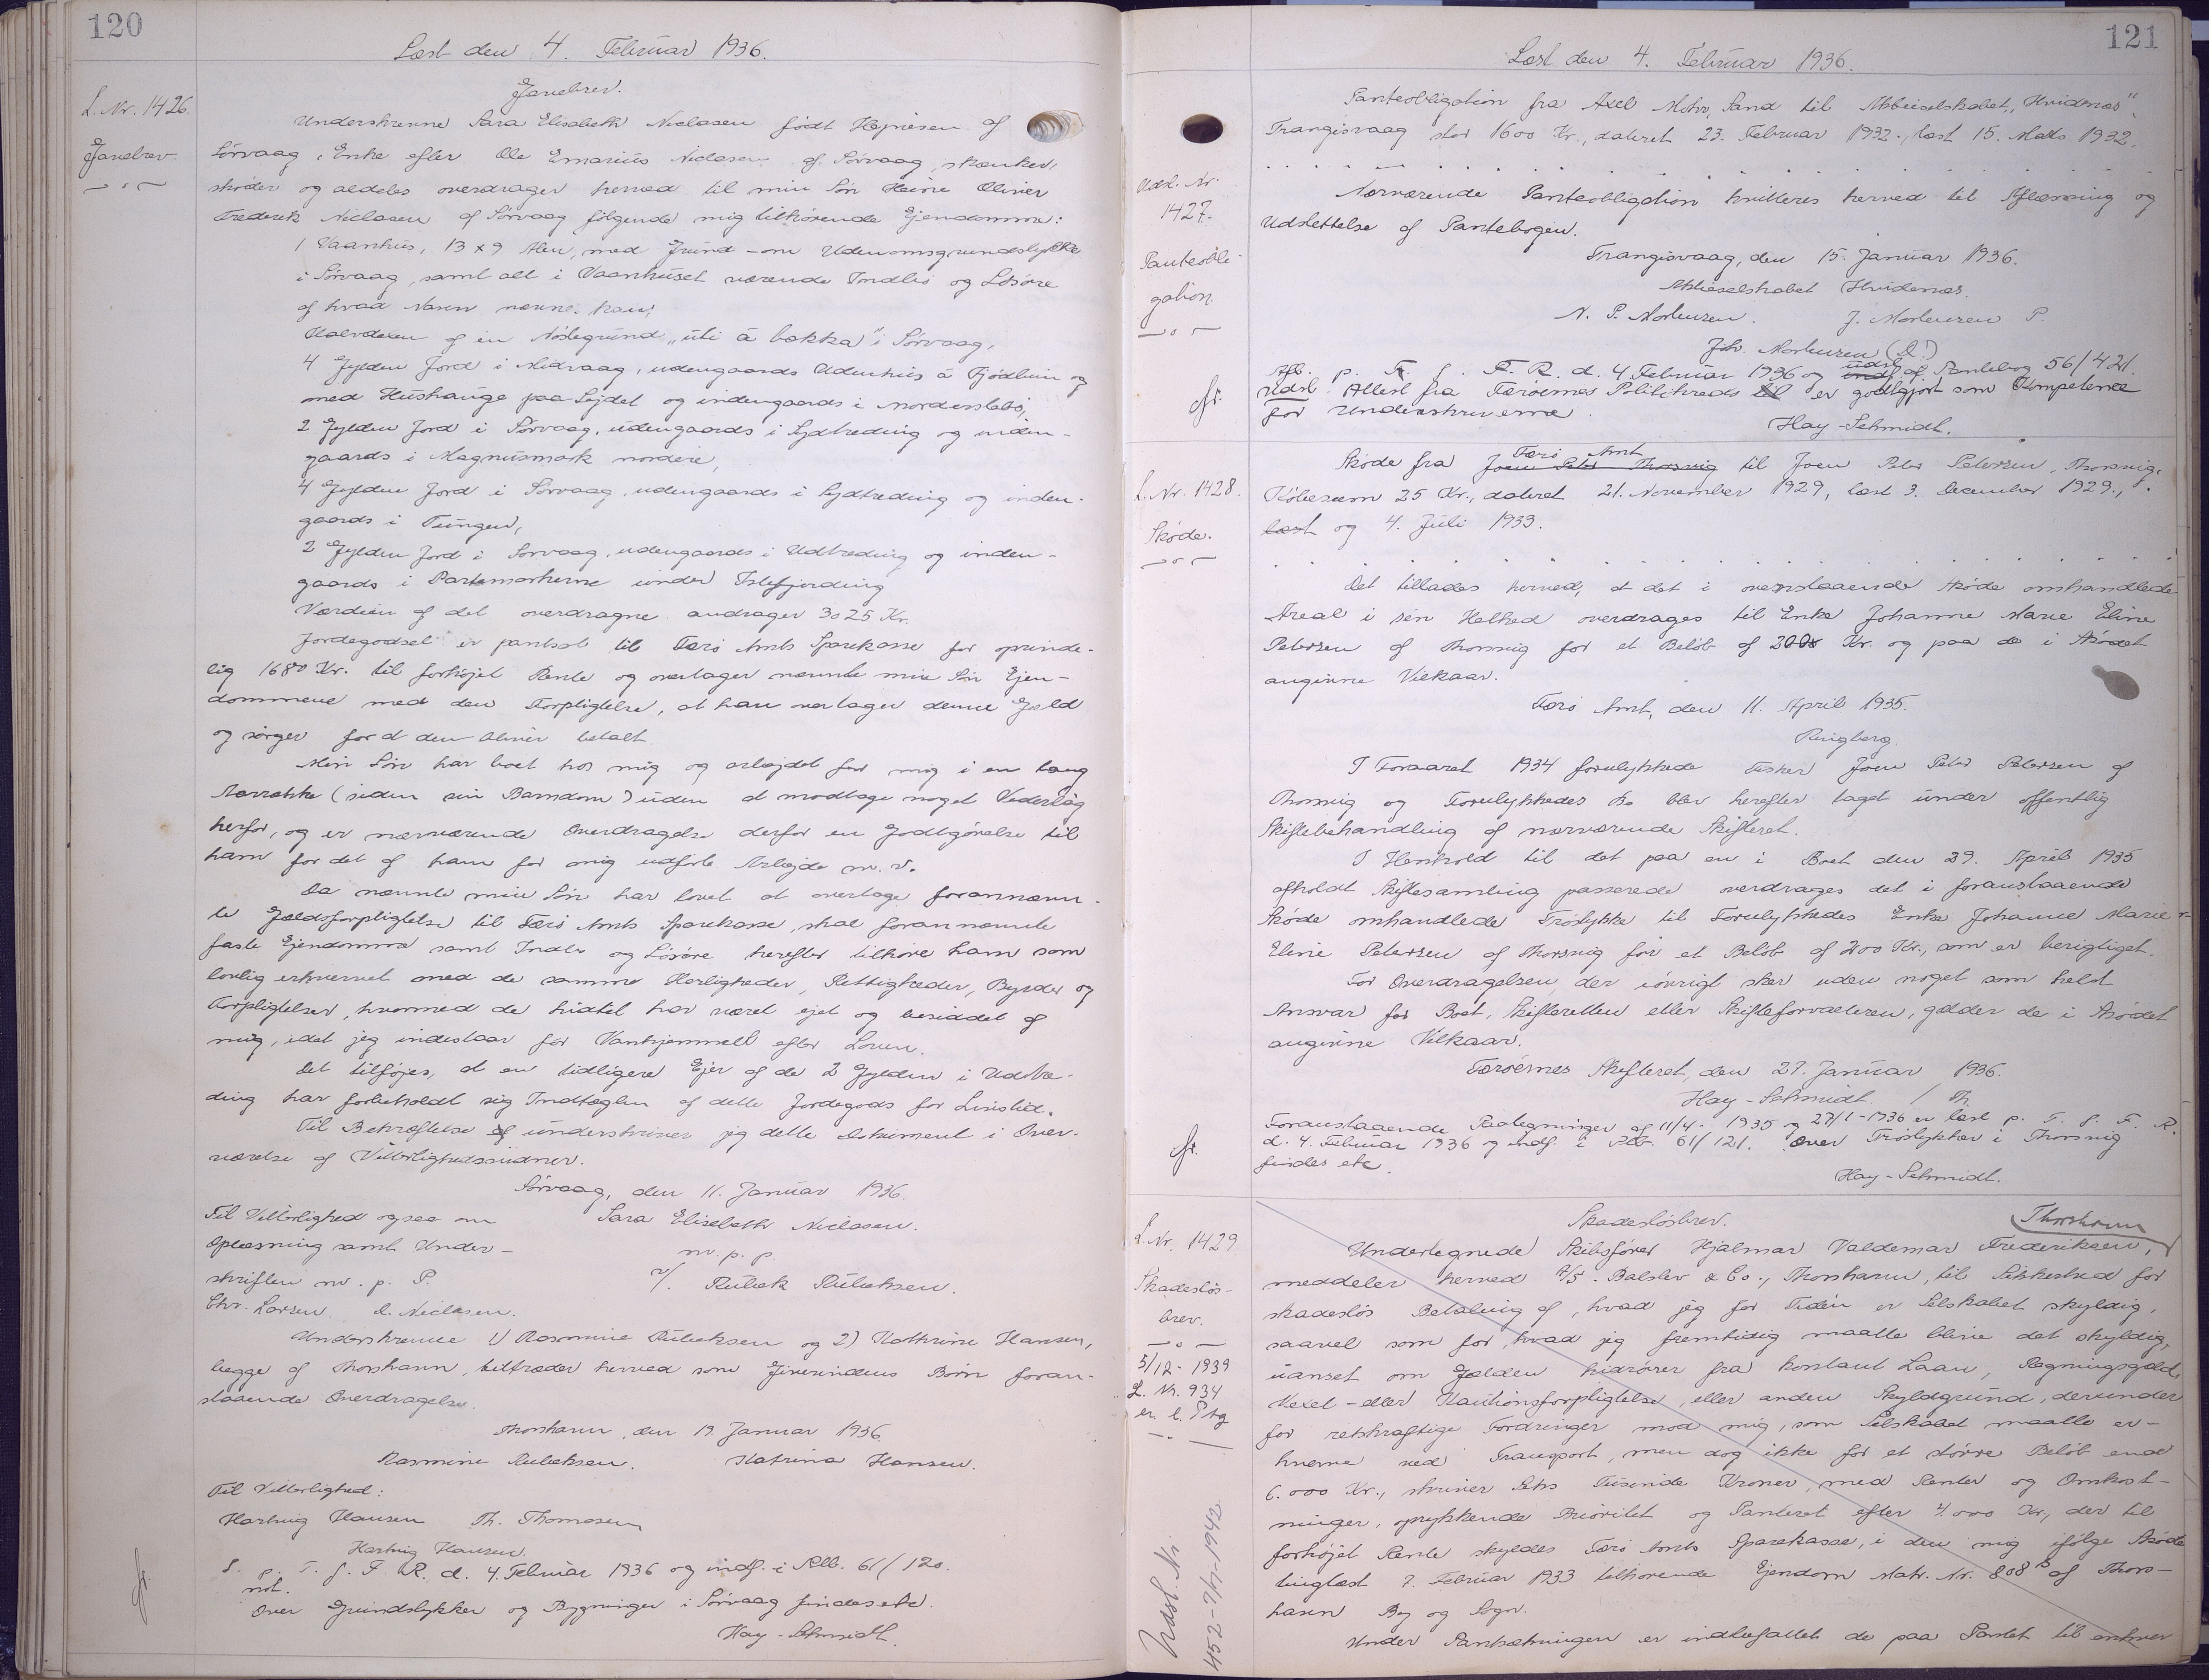 120
Læst den 4. Februar 1936.
L. Nr. 1426.
Gavebrev.
Gavebrev.
Underskrevne Sara Elisabeth Niclasen født Hejnesen af
Sörvaag, Enke efter Ole Emarius Niclasen af Sörvaag, skænker,
skøder og aldeles overdrager herved til min Sön Heine Oliver
Frederik Niclasen af Sörvaag følgende mig tilhörende Ejendomme:
1 Vaanhus, 13 x 9 Alen, med Grund- og Udenomsgrundstykke
i Sörvaag, samt alt i Vaanhuset værende Indbo og Lösöre
af hvad Navn nævnes kan,
Halvdelen af en Nöstegrund "úti á bakka" i Sörvaag,
4 Gylden Jord i Midvaag, udengaards Udenhús á Fjödlum og
med Húshauge paa Lydet og indengaards i Nordesslebö,
2 Gylden Jord i Sörvaag, udengaards i Sydtreding og inden-
gaards i Magnusmark nordere,
4 Gylden Jord i Sörvaag, udengaards i Sydtreding og inden-
gaards i Tungen,
2 Gylden Jord i Sörvaag, udengaards i Udtreding og inden-
gaards i Partamarkerne under Islefjerding
Værdien af det overdragne andrager 3025 Kr.
Jordegodset er pantsat til Færö Amts Sparekasse for oprinde-
lig 1680 Kr. til forhöjet Rente og overtager nævnte min Sön Ejen-
dommene med den Forpligtelse, at han overtager denne Gæld
og sörger for at den bliver betalt.
Min Sön har boet hos mig og arbejdet for mig i en lang
Aarrække (siden sin Barndom) uden at modtage noget Vederlag
herfor, og er nærværende Overdragelse derfor en Godtgörelse til
ham for det af ham for mig udförte Arbejde m. v.
Da nævnte min Sön har lovet at overtage forannævn-
te Gældsforpligtelse til Færö Amts Sparekasse, skal forannævnte
faste Ejendomme samt Indbo og Lösöre herefter tilhöre ham som
lovlig erhvervet med de samme Herligheder, Rettigheder, Byrder og
Forpligtelser, hvormed de hidtil har været ejet og besiddet af
mig, idet jeg indestaar for Vanhjemmel efter Loven.
Det tilföjes, at en tidligere Ejer af de 2 Gylden i Udtre-
ding har forbeholdt sig Indtægten af dette Jordegods for Livstid.
Til Bekræftelse underskriver jeg dette Dokument i Over-
værelse af Vitterlighedsvidner.
Sörvaag, den 11. Januar 1936.
Til Vitterlighed ogsaa om
Oplæsning samt Under-
skriften m. p. P.
Chr. Larsen D. Niclasen.
Sara Elisabeth Niclasen.
m. p. p
v/. Rubek Rubeksen.
Underskrevne 1) Rasmine Rubeksen og 2) Kathrine Hansen,
begge af Thorshavn, tiltræder herved som Giverindens Börn foran-
staaende Overdragelse.
Thorshavn, den 19. Januar 1936
Rasmine Rubeksen. Katrina Hansen.
Til Vitterlighed:
Hartvig Hansen Th. Thomasen
Hartvig Hansen.
L. p. T. f. F. R. d. 4. Februar 1936 og indf. i Rbb. 61/120.
not.
Over Grundstykker og Bygninger i Sörvaag findes etc.
Hay-Schmidt.
121
Læst den 4. Februar 1936.
Udsl. Nr.
1427.
Panteobli-
gation
Panteobligation fra Axel Mohr, Sand til Aktieselskabet "Hvidenæs"
Trangisvaag stor 1600 Kr., dateret 23. Februar 1932., læst 15. Marts 1932.
Nærværende Panteobligation kvitteres herved til Aflæsning og
Udslettelse af Pantebogen.
Trangisvaag, den 15. Januar 1936.
Aktieselskabet Hvidenæs.
N. P. Mortensen. J. Mortensen P.
Joh. Mortensen
Afl. p. T. f. F. R. d. 4 Februar 1936 og udsl. af Pantebog 56/421.
Udsl. Attest fra Færöernes Politikreds er godtgjort som Kompetence
for Underskriverne.
Hay-Schmidt.
L. Nr. 1428.
Skøde.
Skøde fra Joen Peter Thorsvig Færö Amt til Joen Peter Petersen, Thorsvig,
Købesum 25 Kr., dateret 21. November 1929, læst 3. December 1929.,
læst og 4. Juli 1933.
Det tillades herved, at det i ovenstaaende Skøde omhandlede
Areal i sin Helhed overdrages til Enke Johanne Marie Eline
Petersen af Thorsvig for et Beløb af 200 Kr. og paa de i Skødet
angivne Vilkaar.
Færö Amt, den 11. April 1935.
Ringberg.
I Foraaret 1934 forulykkede Fisker Joen Peter Petersen af
Thorsvig og Forulykkedes Bo blev herefter taget under offentlig
Skiftebehandling af nærværende Skifteret.
I Henhold til det paa en i Boet den 29. April 1935
afholdt Skiftesamling passerede overdrages det i foranstaaende
Skøde omhandlede Tröstykke til Forulykkedes Enke Johanne Marie
Eline Petersen af Thorsvig for et Beløb af 200 Kr., som er berigtiget.
For Overdragelsen, der iövrigt sker uden noget som helst
Ansvar for Boet, Skifteretten eller Skifteforvalteren, gælder de i Skødet
angivne Vilkaar.
Færöernes Skifteret, den 27. Januar 1936.
Hay-Schmidt. / Th.
Foranstaaende Paategninger af 11/4-1935 og 27/1-1936 er læst p. T. f. F. R.
d. 4. Februar 1936 og indf. i Rbb. 61/121. Over Tröstykker i Thorsvig
findes etc.
Hay-Schmidt.
L. Nr. 1429.
Skadeslös-
brev.
5/12-1939
L. Nr. 934
er l. Ptg
Udsl. Nr.
452-7/7-1942.
Skadeslösbrev.
Thorshavn
Undertegnede Skibsförer Hjalmar Valdemar Frederiksen,
meddeler herved A/S. Balslev & Co., Thorshavn, til Sikkerhed for
skadeslös Betaling af, hvad jeg for Tiden er Selskabet skyldig,
saavel som for, hvad jeg fremtidig maatte blive det skyldig,
uanset om Gælden hidrörer fra kontant Laan, Regningsgæld,
Vexel- eller Kautionsforpligtelse, eller anden Skyldgrund, derunder
for retskraftige Fordringer mod mig, som Selskabet maatte er-
hverve ved Transport, men dog ikke for et större Beløb end
6.000 Kr., skriver Seks Tusinde Kroner, med Renter og Omkost-
ninger, oprykkende Prioritet og Panteret efter 4.000 Kr., der til
forhöjet Rente skyldes Færö Amts Sparekasse, i den mig ifölge Skøde
tinglæst 7. Februar 1933 tilhörende Ejendom Matr. Nr. 808 b af Thors-
havn By og Sogn.
Under Pantsætningen er indbefattet de paa Pantet til enhver